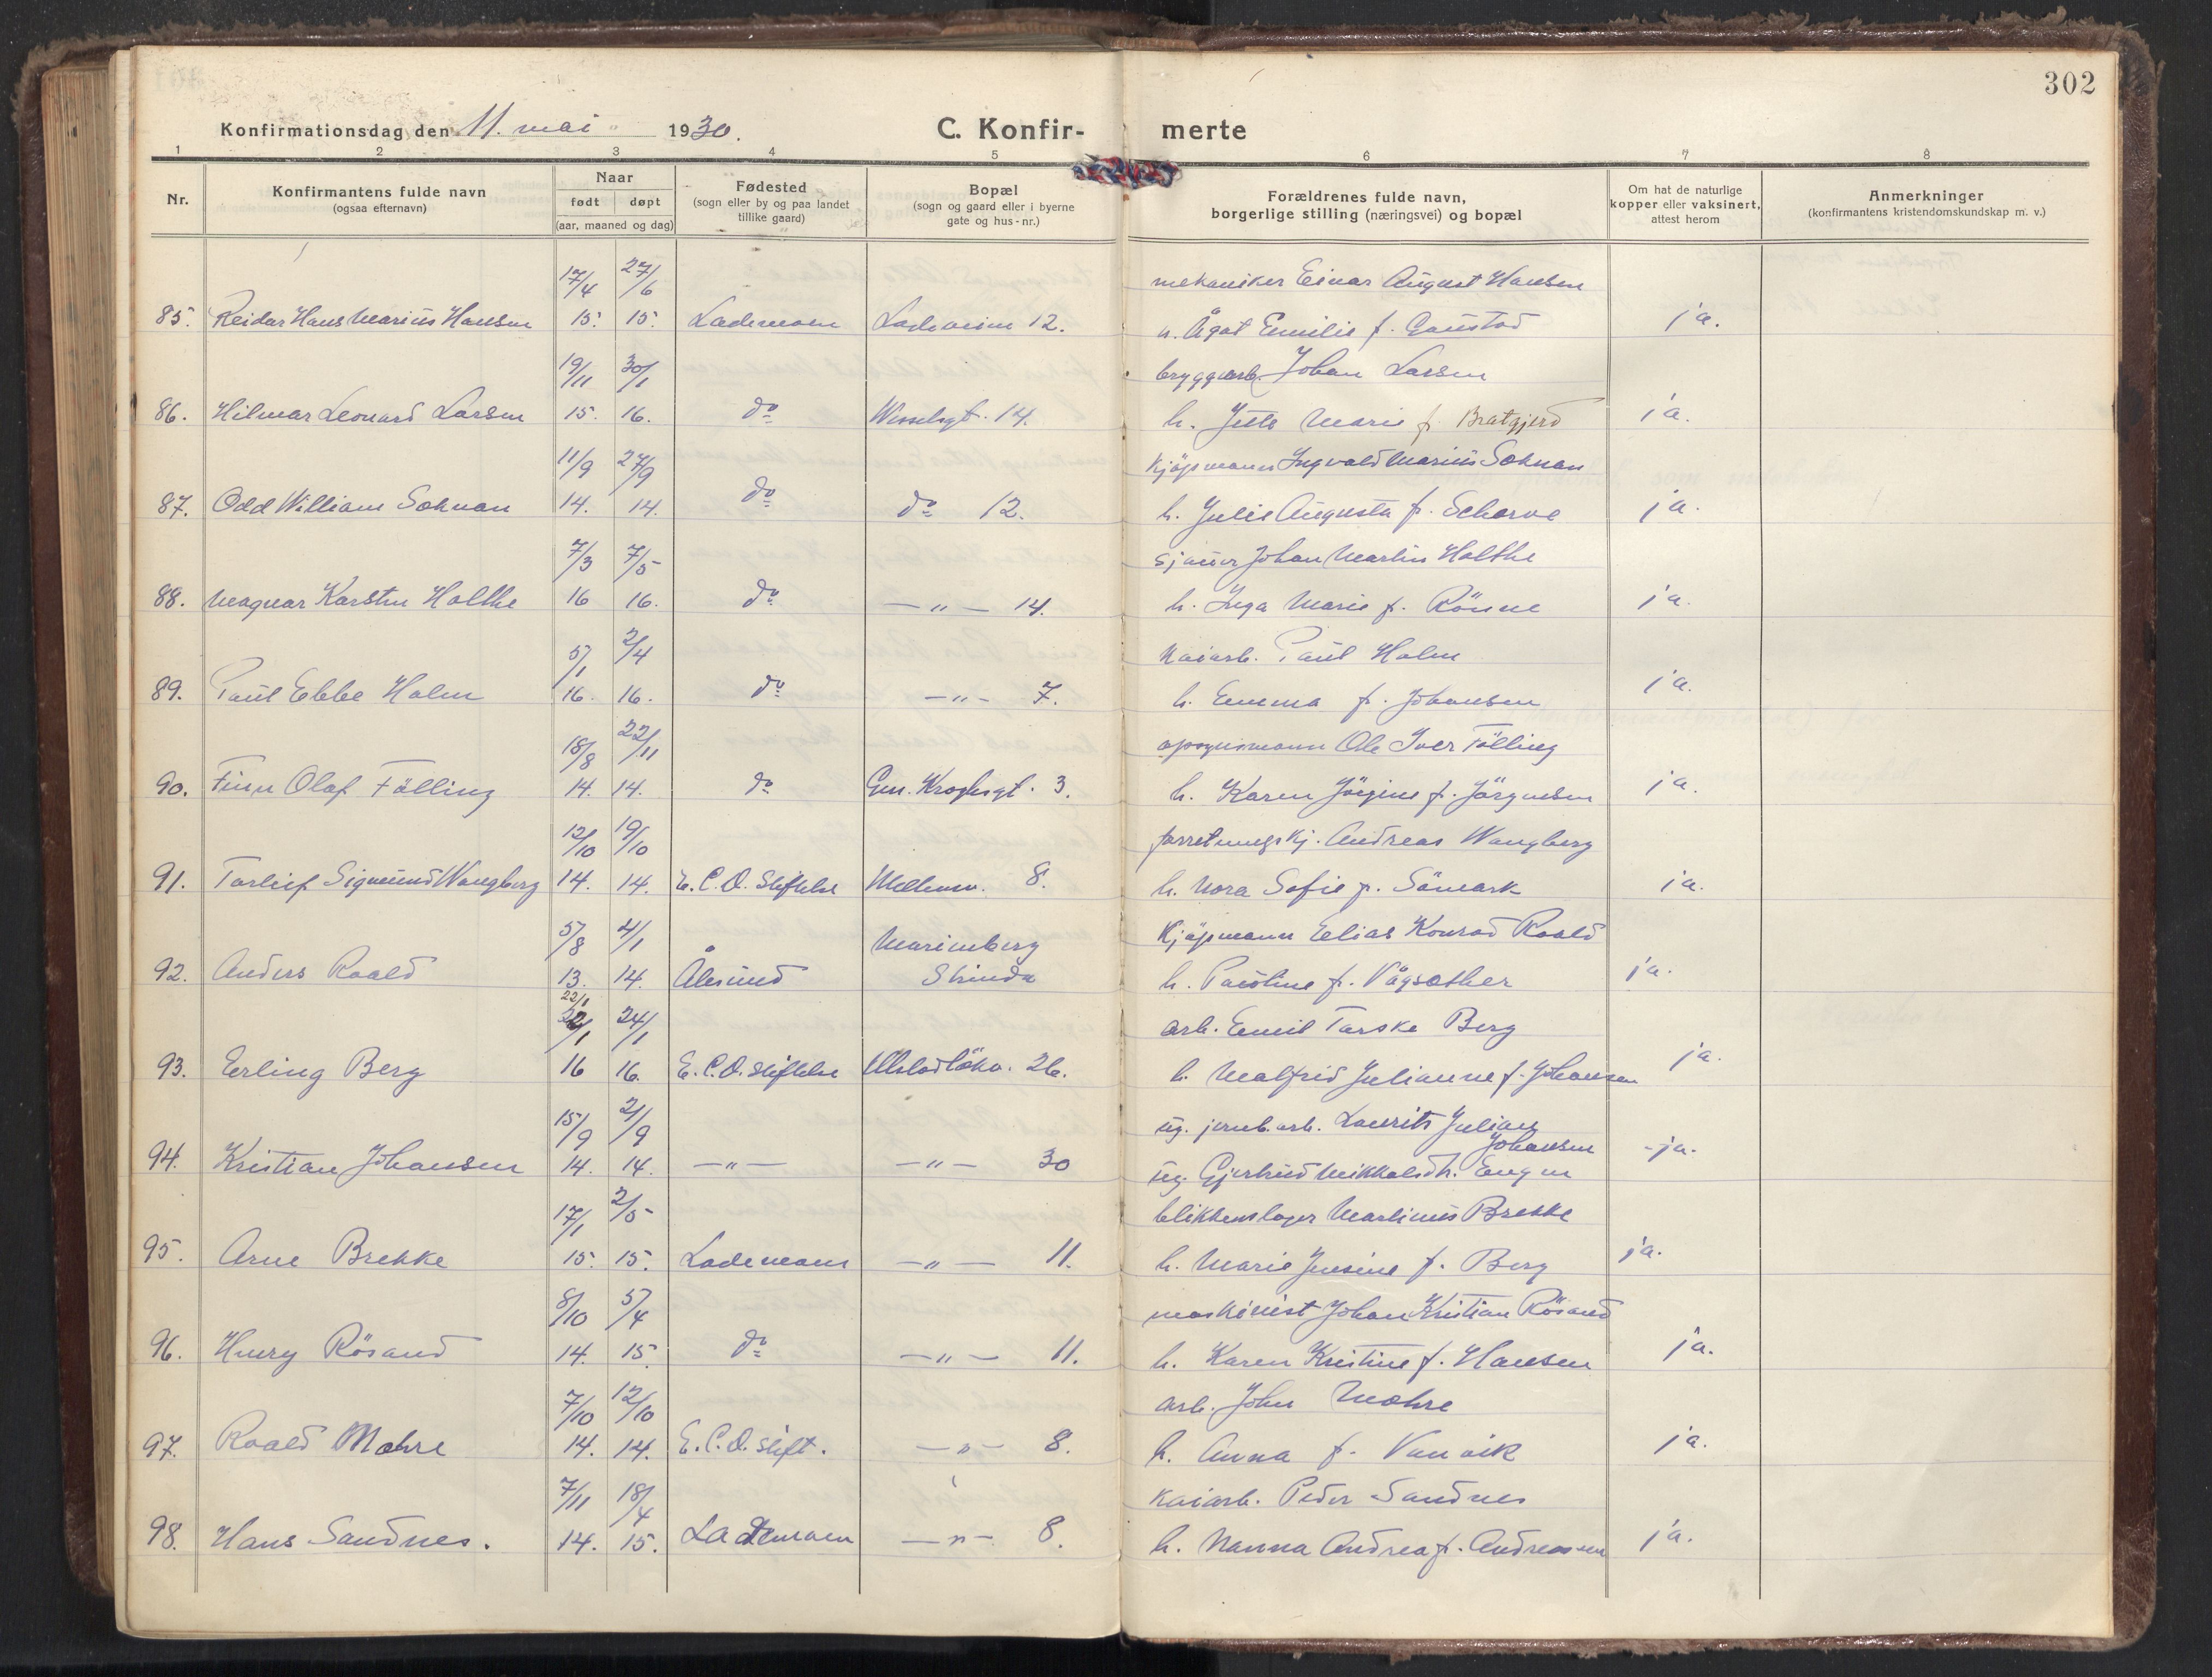 302
Konfirmationsdag den 11. mai 1930.
C. Konfirmerte
1 2 3 4 5 6 7 8
Nr.
Konfirmantens fulde navn
(ogsaa efternavn)
Naar
født døpt
(aar, maaned og dag)
Fødested
(sogn eller by og paa landet
tillike gaard)
Bopæl
(sogn og gaard eller i byerne
gate og hus-nr.)
Forældrenes fulde navn,
borgerlige stilling (næringsvei) og bopæl
Om hat de naturlige
kopper eller vaksinert,
attest herom
Anmerkninger
(konfirmantens kristendomskundskap m. v.)
17/4 27/6 mekaniker Einar August Hansen
85. Reidar Hans Marius Hansen 15. 15. Lademoen Ladeveien 12. h. Ågot Emilie f. Gaustad ja.
19/11 30/1 bryggearb. Johan Larsen
86. Hilmar Leonard Larsen 15. 16. do Wesselsgt. 14. h. Jette Marie f. Bratgjerd ja.
11/9 27/9 Kjøpmann Ingvald Marius Soknan
87. Odd William Soknan 14. 14. do do 12. h. Julie Augusta f. Scharve ja.
7/3 7/5 sjauer Johan Martin Holthe
88. Magnar Karsten Holthe 16 16. do — " — 14. h. Inga Marie f. Rönne ja.
5/1 2/4 Kaiarb. Paul Holm
89. Paul Ebbe Holm 16. 16. do — " — 7. h. Emma f. Johansen ja.
18/8 22/11 opsynsmann Ole Iver Fölling
90. Finn Olaf Fölling 14. 14. do Gen. Kroghsgt. 3. h. Karen Jörgine f. Jörgensen ja.
12/10 19/10 forretningskj. Andreas Wangberg
91. Torleif Sigmund Wangberg 14. 14. E.C.D. Stiftelse Mellemv. 8. h. Nora Sofie f. Sömark ja.
5/8 4/1 Marienberg Kjøpmann Elias Konrad Roald
92. Anders Roald 13. 14. Ålesund Strinda h. Pauline f. Vågsæther ja.
22/1
22/1 24/1 arb. Emil Torske Berg
93. Erling Berg 16 16. E.C.D. Stiftelse Ulstadlökv. 26. h. Malfrid Julianne f. Johansen ja.
15/9 2/9 ug. jernb.arb. Laurits Julian
Johansen
94. Kristian Johansen 14. 14. — " — — " — 30 ug. Gjertrud Mikkalsdtr. Engen -ja.
17/1 2/5 blikkenslager Martinus Brekke
95. Arne Brekke 15. 15. Lademoen — " — 11. h. Marie Jensine f. Berg ja.
8/10 5/4 maskinist Johan Kristian Rösand
96. Henry Rösand 14. 15. do — " — 11. h. Karen Kristine f. Hansen ja.
7/10 12/10 arb. John Mohre
97. Roald Mohre 14. 14. E.C.D. Stift. — " — 8. h. Anna f. Vanvik ja.
7/11 18/4 Kaiarb. Peder Sandnes
98. Hans Sandnes. 14. 15. Lademoen — " — 8. h. Nanna Andrea f. Andreassen ja.